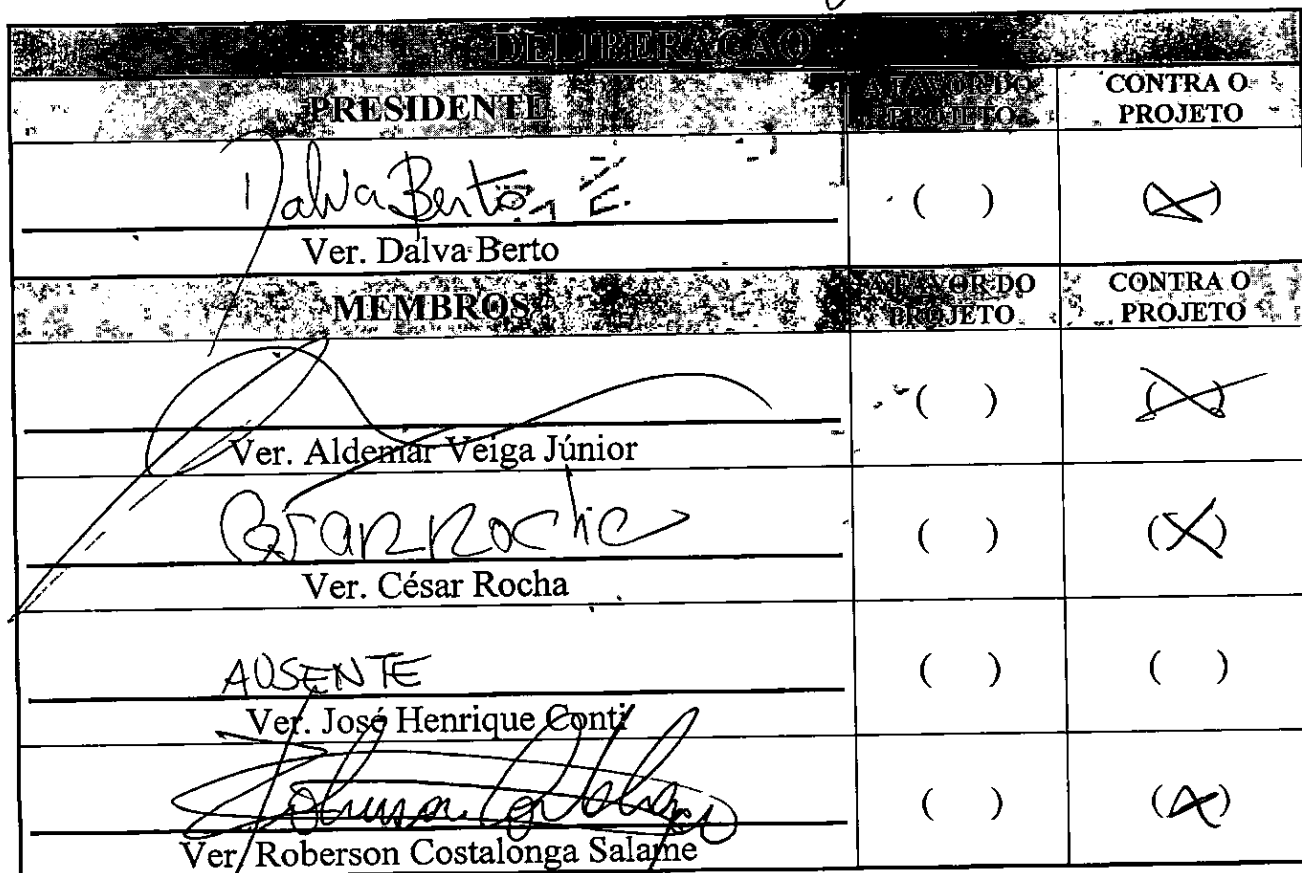 DELIBERAÇÃO
PRESIDENTE A FAVOR DO PROJETO CONTRA O PROJETO
Dalva Berto ( ) (X)
Ver. Dalva Berto
MEMBROS A FAVOR DO PROJETO CONTRA O PROJETO
( ) (X)
Ver. Aldemar Veiga Júnior
César Rocha ( ) (X)
Ver. César Rocha
AUSENTE ( ) ( )
Ver. José Henrique Conti
( ) (X)
Ver. Roberson Costalonga Salame